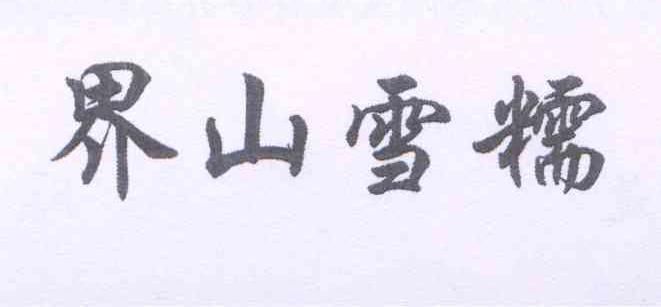 界山雪糯